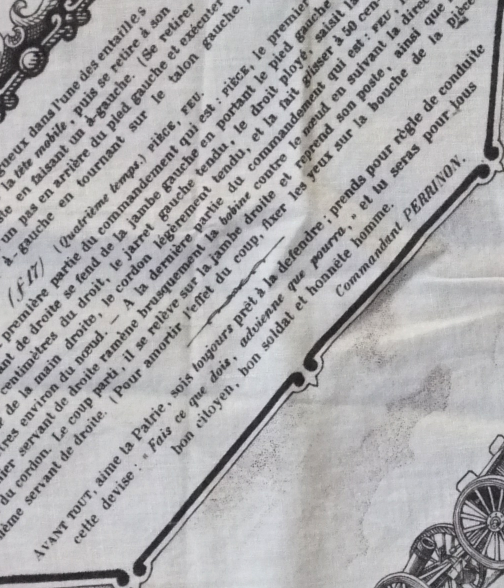 gueux dans l'une des entailles
la tête mobile, puis se retire à son
en faisant un à-gauche. (Se retirer
un pas en arrière du pied gauche et exécuter
à-gauche en tournant sur le talon gauche.
(f 17) (Quatrième temps.) PIÈCE, FEU.
première partie du commandement qui est : PIÈCE, le premier
de droite se fend de la jambe gauche en portant le pied gauche
centimètres du droit, le jarret gauche tendu, le droit ployé
de la main droite, le cordon légèrement tendu, et la fait
environ du nœud. — A la dernière partie du commandement qui est : FEU
servant de droite ramène brusquement la bobine contre en suivant la
du cordon. Le coup parti, il se relève sur la jambe droite et reprend son poste, ainsi que
même servant de droite. (Pour amortir l'effet du coup, fixer les yeux sur la bouche de la pièce
AVANT TOUT, aime ta Patrie, sois toujours prêt à la défendre ; prends pour règle de conduite
cette devise : « Fais ce que dois, advienne que pourra. » et tu seras pour tous
bon citoyen, bon soldat et honnête homme.
Commandant PERRINON.